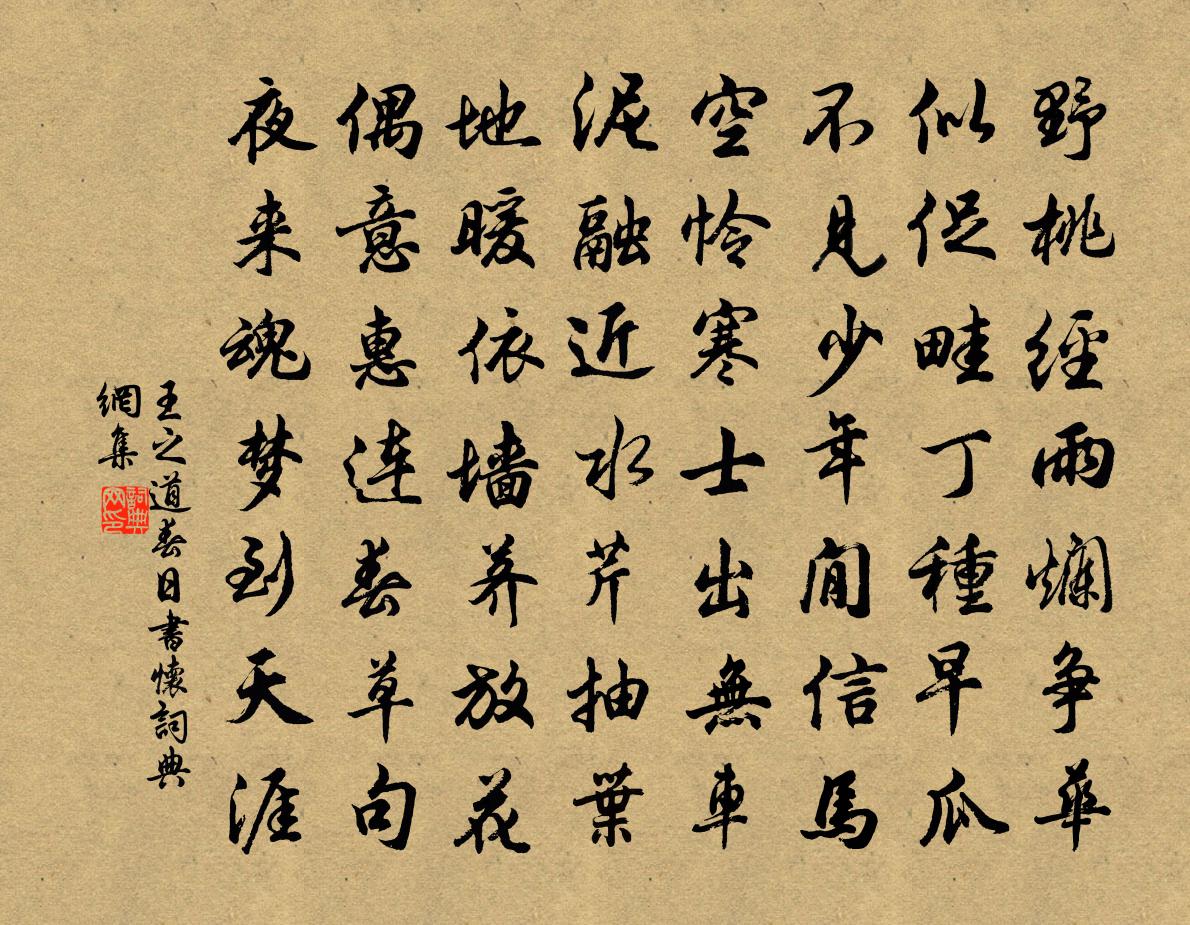 野桃經雨爛争華
似促畦丁種早瓜
不見少年閒信馬
空怜寒士出無車
泥融近水芹抽葉
地暖依墙荞放花
偶意惠连春草句
夜来魂梦到天涯
王之道春日書懷詞典
網集
詞典
网印